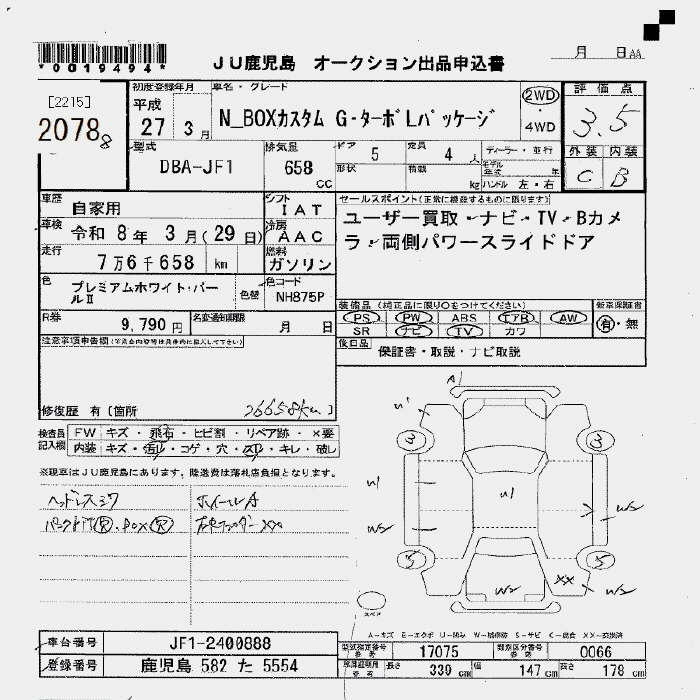 *0019494*
JU鹿児島 オークション出品申込書
月 日 AA
[2215]
20788
初度登録年月
平成
27 3月
車名・グレード
N_BOXカスタム G・ターボLパッケージ
2WD
4WD
評価点
3.5
外装 内装
C B
型式
DBA-JF1
排気量
658
CC
ドア 5
定員 4 人
ディーラー・並行
形状
積載 kg
モデル年式 年
ハンドル 左・右
車歴
自家用
シフト
IAT
車検
令和 8年 3月(29日)
冷房
AAC
走行
7万6千658 km
燃料
ガソリン
色
プレミアムホワイト・パールII
色替
色コード
NH875P
R券
9,790 円
名変通知期限
月 日
セールスポイント(正常に機能するものに限ります)
ユーザー買取・ナビ・TV・Bカメ
ラ・両側パワースライドドア
装備品(純正品に限り○をつけてください)
PS PW ABS エアB AW
SR ナビ TV カワ
新車保証書
有・無
後日品
保証書・取説・ナビ取説
注意事項申告欄
修復歴 有[箇所
76658km]
検査員
記入欄
FW キズ・飛石・ヒビ割・リペア跡・×要
内装 キズ・汚れ・コゲ・穴・スリ・キレ・破レ
※現車はJU鹿児島にあります、陸送費は落札店負担となります。
ホイールA
A
U1
3
3
U1
U1
W2
W2
5
5
W2
XX
W2
スペア
A-キズ E-エクボ U-凹み W-補修跡 S-サビ C-腐食 XX-交換済
車台番号
JF1-2400888
登録番号
鹿児島 582 た 5554
型式指定番号
17075
類別区分番号
0066
長さ 339 cm
幅 147 cm
高さ 178 cm